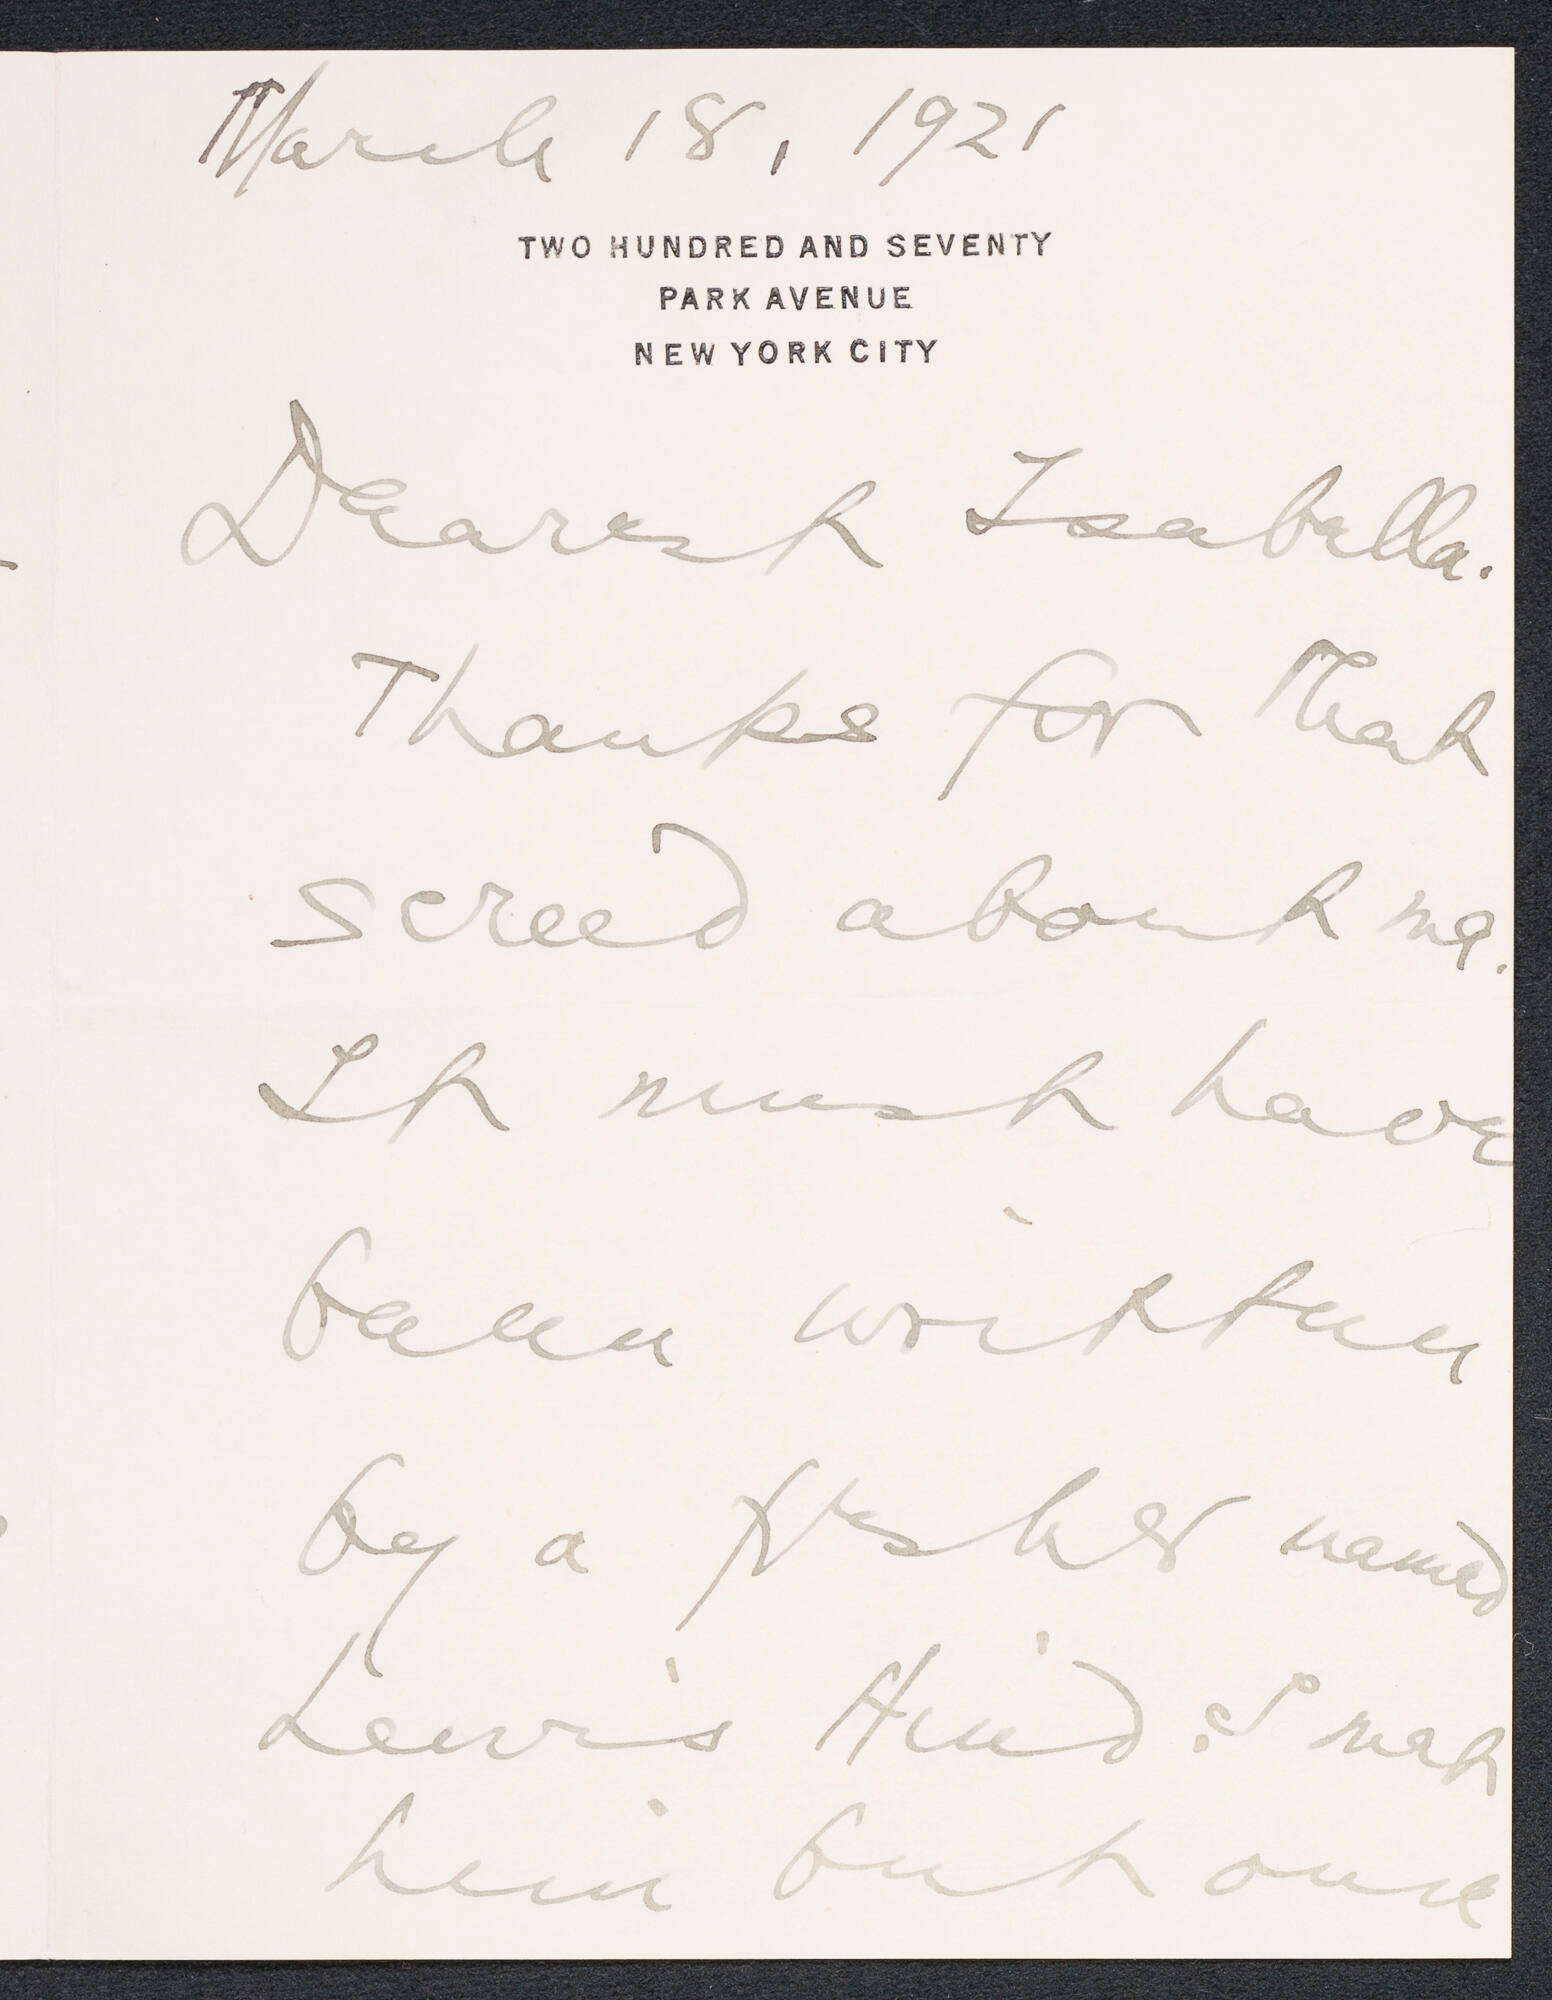 March 18, 1921
TWO HUNDRED AND SEVENTY
PARK AVENUE
NEW YORK CITY
Dearest Isabella.
Thanks for that
screed about me.
It must have
been written
by a fresher named
Lewis Hind. I met
him but once